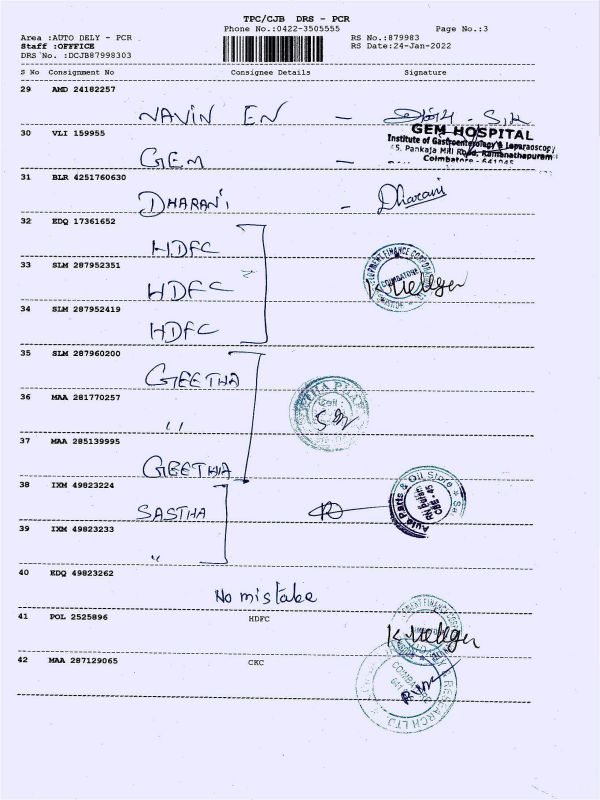 TPC/CJB DRS - PCR
Phone No.:0422-3505555 Page No.:3
Area :AUTO DELY - PCR RS No.:879983
Staff :OFFFICE RS Date:24-Jan-2022
DRS No. :DCJB87998303
S No Consignment No Consignee Details Signature
29 AMD 24182257
NAVIN EN -
30 VLI 159955
GEM HOSPITAL
Institute of Gastroenterology & Laparaoscopy
45, Pankaja Mill Road, Ramanathapuram
Coimbatore - 641045
GEM -
31 BLR 4251760630
DHARANI - Dharani
32 EDQ 17361652
HDFC
33 SLM 287952351
HDFC
34 SLM 287952419
HDFC
35 SLM 287960200
GEETHA
36 MAA 281770257
"
37 MAA 285139995
GEETHA
38 IXM 49823224
SASTHA
Auto Parts & Oil Store
CBE - 45
39 IXM 49823233
"
40 EDQ 49823262
No mistake
41 POL 2525896 HDFC
42 MAA 287129065 CKC
COIMBATORE
RESEARCH LTD.